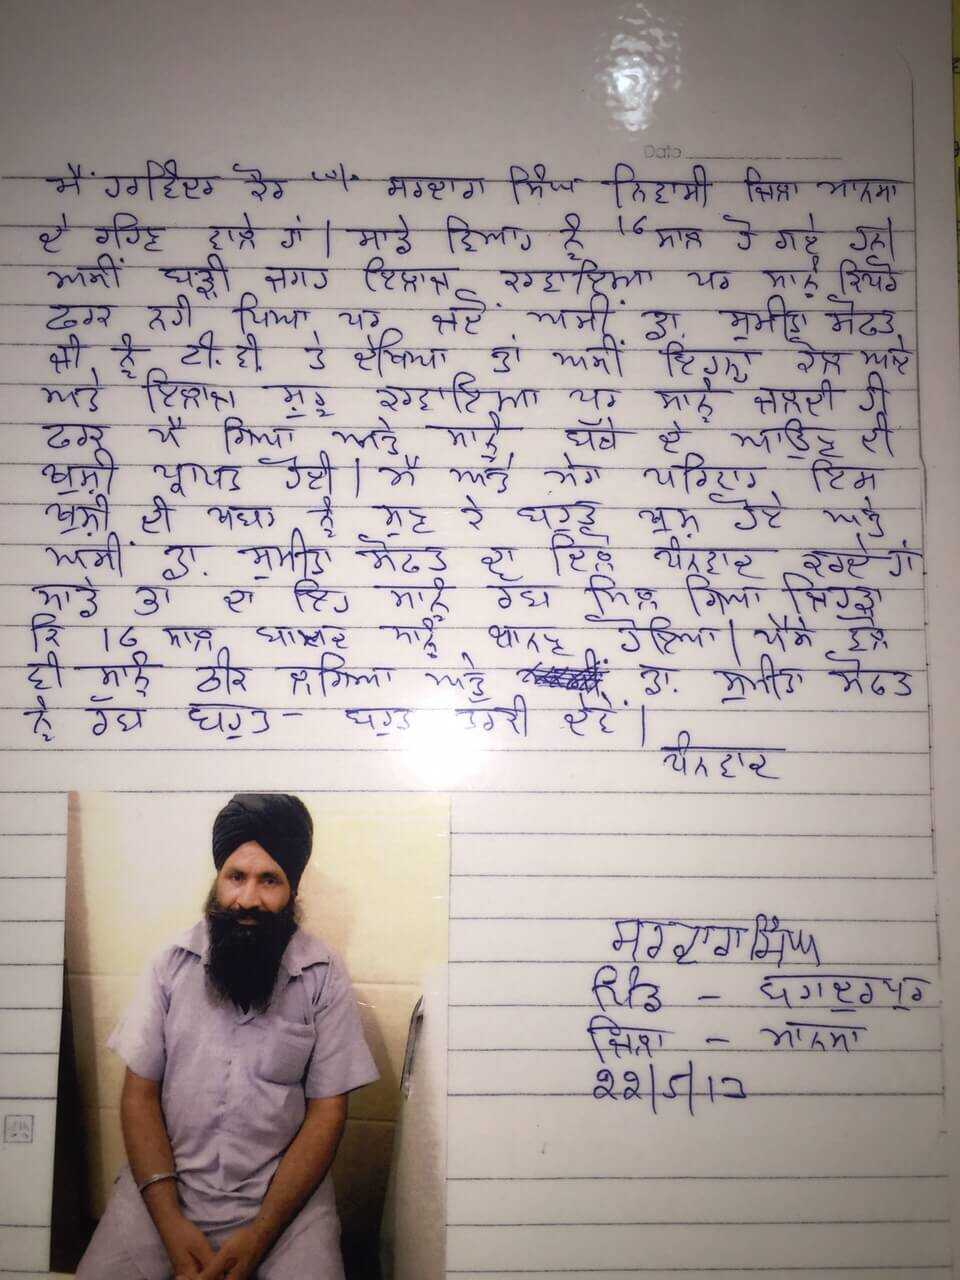 Date
ਮੈਂ ਹਰਵਿੰਦਰ ਕੌਰ w/o ਸਰਦਾਰਾ ਸਿੰਘ ਨਿਵਾਸੀ ਜਿਲਾ ਮਾਨਸਾ
ਦੇ ਰਹਿਣ ਵਾਲੇ ਹਾਂ | ਸਾਡੇ ਵਿਆਹ ਨੂੰ 16 ਸਾਲ ਹੋ ਗਏ ਹਨ|
ਅਸੀਂ ਬੜੀ ਜਗਾਹ ਇਲਾਜ ਕਰਵਾਇਆ ਪਰ ਸਾਨੂੰ ਕਿਧਰੋ
ਫਰਕ ਨਹੀ ਪਿਆ ਪਰ ਜਦੋਂ ਅਸੀਂ ਡਾ. ਸੁਮੀਤਾ ਸੋਫਤ
ਜੀ ਨੂੰ ਟੀ.ਵੀ. ਤੇ ਦੇਖਿਆ ਤਾਂ ਅਸੀਂ ਇਹਨਾਂ ਕੋਲ ਆਏ
ਅਤੇ ਇਲਾਜ ਸ਼ੁਰੂ ਕਰਵਾਇਆ ਪਰ ਸਾਨੂੰ ਜਲਦੀ ਹੀ
ਫਰਕ ਪੈ ਗਿਆ ਅਤੇ ਸਾਨੂੰ ਬੱਚੇ ਦੇ ਆਉਣ ਦੀ
ਖੁਸ਼ੀ ਪ੍ਰਾਪਤ ਹੋਈ | ਮੈਂ ਅਤੇ ਮੇਰਾ ਪਰਿਵਾਰ ਇਸ
ਖੁਸ਼ੀ ਦੀ ਖਬਰ ਨੂੰ ਸੁਣ ਕੇ ਬਹੁਤ ਖੁਸ਼ ਹੋਏ ਅਤੇ
ਅਸੀਂ ਡਾ. ਸੁਮੀਤਾ ਸੋਫਤ ਦਾ ਦਿਲੋਂ ਧੰਨਵਾਦ ਕਰਦੇ ਹਾਂ
ਸਾਡੇ ਤਾਂ ਦਾ ਇਹ ਸਾਨੂੰ ਰੱਬ ਮਿਲ ਗਿਆ ਜਿਹੜਾ
ਕਿ 16 ਸਾਲ ਬਾਅਦ ਸਾਨੂੰ ਬਾਲਣ ਹੋਇਆ | ਪੈਸੇ ਵੱਲੋਂ
ਵੀ ਸਾਨੂੰ ਠੀਕ ਲਗਿਆ ਅਤੇ ਡਾ. ਸੁਮੀਤਾ ਸੋਫਤ
ਨੂੰ ਰੱਬ ਬਹੁਤ - ਬਹੁਤ ਤਰੱਕੀ ਦੇਵੇ |
ਧੰਨਵਾਦ
ਸਰਦਾਰਾ ਸਿੰਘ
ਪਿੰਡ - ਬਹਾਦਰਪੁਰ
ਜ਼ਿਲਾ - ਮਾਨਸਾ
੨੨/5/13